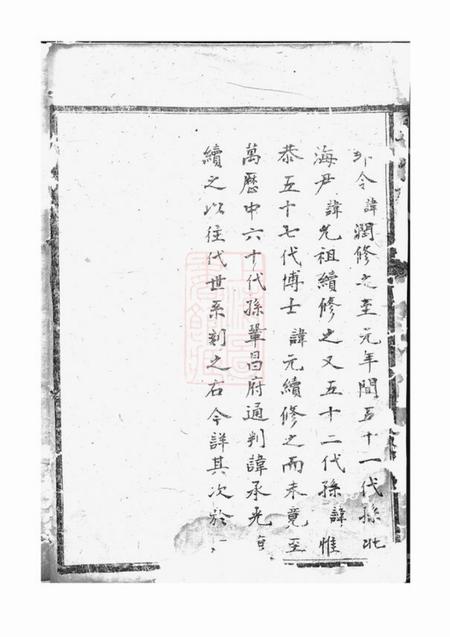 令諱潤修之至元年間五十一代孫北
海尹諱光祖續修之又五十二代孫諱惟
恭五十七代博士諱元續修之而未竟至
萬曆中六十代孫鞏昌府通判諱承光
續之以往代世系刻之右今詳其次於